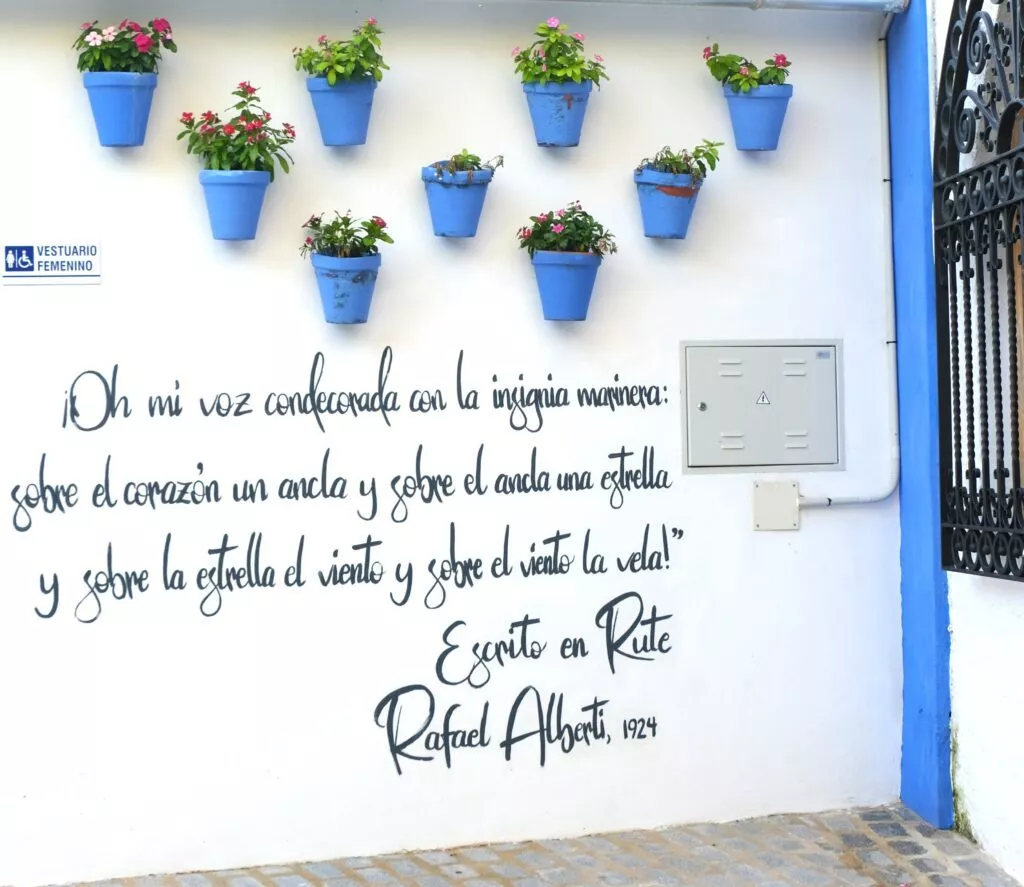 VESTUARIO
FEMENINO
¡Oh mi voz condecorada con la insignia marinera:
sobre el corazón un ancla y sobre el ancla una estrella
y sobre la estrella el viento y sobre el viento la vela!"
Escrito en Rute
Rafael Alberti, 1924